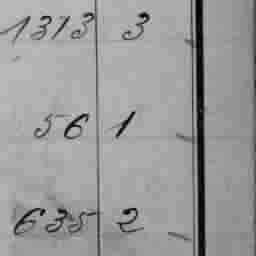 1313 3
56 1
635 2